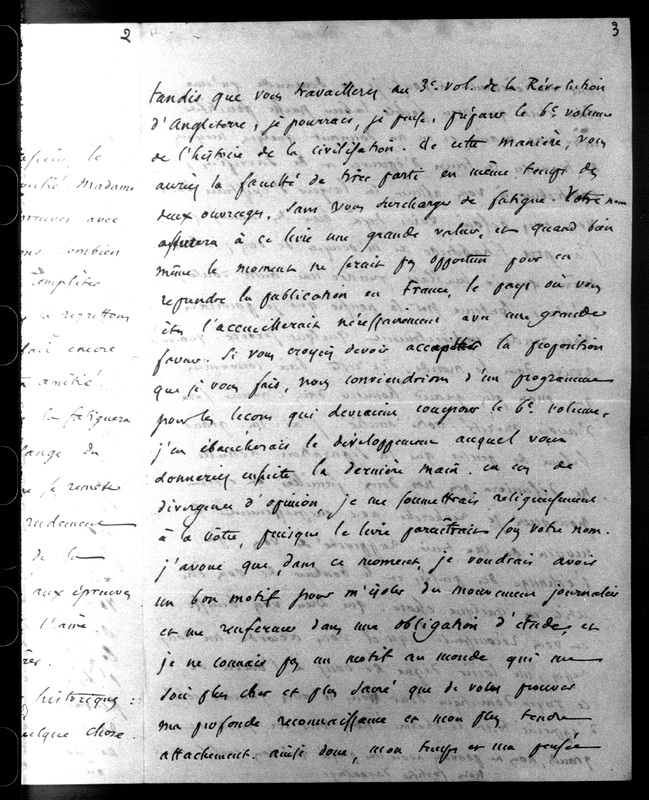 2
3
tandis que vous travailleriez au 3e. vol. de la Révolution
d'Angleterre, je pourrais, je pense, préparer le 6e. volume
de l'histoire de la civilisation. de cette manière, vous
auriez la faculté de tirer parti en même temps des
deux ouvrages, sans vous surcharger de fatigue. Votre nom
assurera à ce livre une grande valeur, et quand bien
même le moment ne serait pas opportun pour en
reprendre la publication en France, le pays où vous
êtes l'accueillerait nécessairement avec une grande
faveur. Si vous croyiez devoir accepter la proposition
que je vous fais, nous conviendrions d'un programme
pour les leçons qui devraient composer le 6e. volume,
j'en ébaucherais le développement auquel vous
donneriez ensuite la dernière main. en cas de
divergence d'opinion, je me soumettrais religieusement
à la vôtre, puisque le livre paraîtrait sous votre nom.
j'avoue que, dans ce moment, je voudrais avoir
un bon motif pour m'isoler du mouvement journalier
et me renfermer dans une obligation d'étude, et
je ne connais pas un motif au monde qui me
soit plus cher et plus sacré que de vous prouver
ma profonde reconnaissance et mon plus tendre
attachement. ainsi donc, mon temps et ma pensée
le
Madame
avec
combien
complètes
regrettons
encore
amitié.
la fatiguera
du
remets
de la
aux épreuves
l'ame
historiques :
quelque chose.